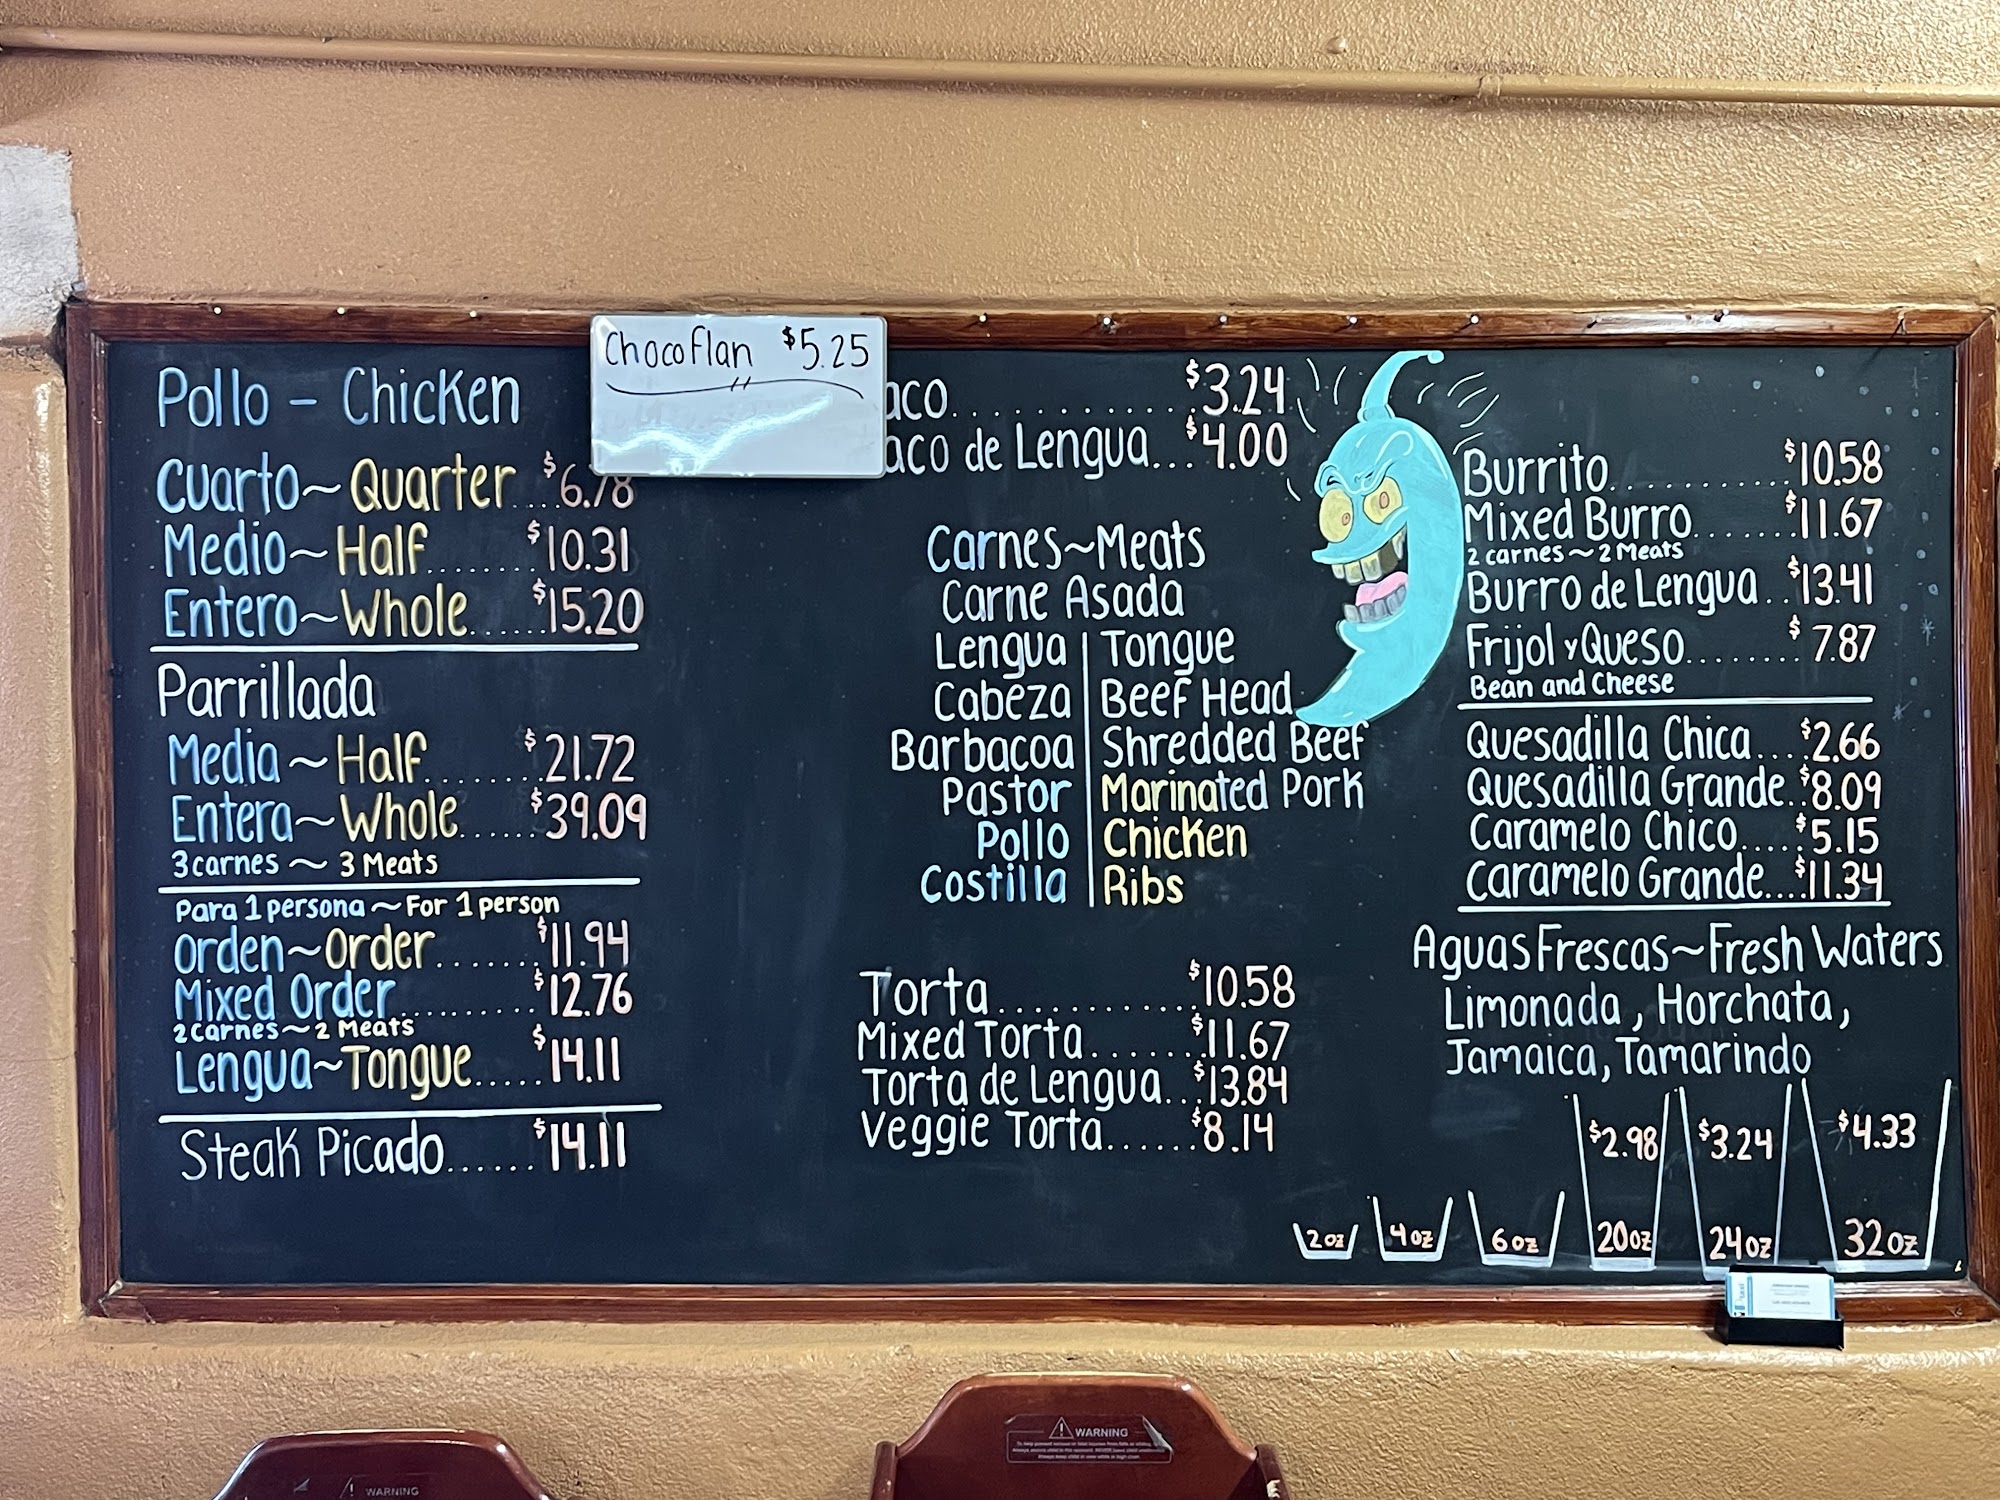 ChocoFlan $5.25
Pollo - Chicken
Cuarto~Quarter...$6.78
Medio~Half........$10.31
Entero~Whole......$15.20
Parrillada
Media~Half........$21.72
Entera~Whole......$39.09
3 carnes ~ 3 Meats
Para 1 persona ~ For 1 person
Orden~Order.......$11.94
Mixed Order..........$12.76
2 carnes ~ 2 Meats
Lengua~Tongue.....$14.11
Steak Picado......$14.11
aco............$3.24
aco de Lengua...$4.00
Carnes~Meats
Carne Asada
Lengua | Tongue
Cabeza | Beef Head
Barbacoa | Shredded Beef
Pastor | Marinated Pork
Pollo | Chicken
Costilla | Ribs
Torta............$10.58
Mixed Torta.......$11.67
Torta de Lengua...$13.84
Veggie Torta......$8.14
Burrito...........$10.58
Mixed Burro.......$11.67
2 carnes ~ 2 Meats
Burro de Lengua..$13.41
Frijol y Queso........$7.87
Bean and Cheese
Quesadilla Chica...$2.66
Quesadilla Grande..$8.09
Caramelo Chico.....$5.15
Caramelo Grande...$11.34
Aguas Frescas~Fresh Waters
Limonada, Horchata,
Jamaica, Tamarindo
$2.98 $3.24 $4.33
2oz 4oz 6oz 20oz 24oz 32oz
WARNING
WARNING